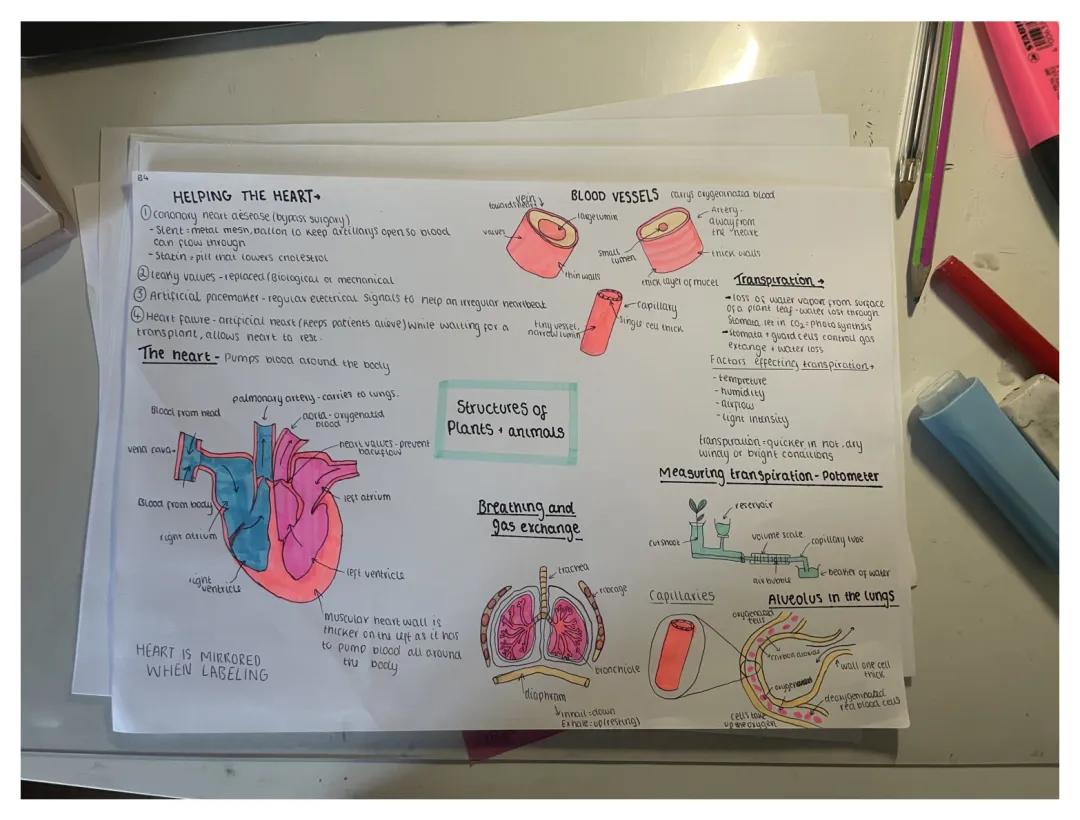 B4
HELPING THE HEART→
① coronary heart desease (bypass surgary)
- Stent = metal mesh, ballon to keep artillarys open so blood
can flow through
- Statin = pill that lowers cholestrol
② leaky valves - replaced (Biological or mechanical
③ Artificial pacemaker - regular electrical signals to help an irregular heartbeat
④ Heart faiure - artificial heart (keeps patients alieve) while waiting for a
transplant, allows heart to rest.
The heart - Pumps blood around the body
pulmonary artery - carries to lungs.
Blood from head
aorta - oxygenated
blood
vena cava
heart valves - prevent
backflow
left atrium
Blood from body
right atrium
left ventricle
right
ventricle
Muscular heart wall is
thicker on the left as it has
to pump blood all around
the body
HEART IS MIRRORED
WHEN LABELING
BLOOD VESSELS
carrys oxygeninated blood
vein
towards heart
large lumin
valves
thin walls
Artery -
away from
the heart
small
lumen
thick walls
thick layer of mucel
capillary
single cell thick
tiny vessel,
narrow lumin
Structures of
Plants + animals
Transpiration →
→ loss of water vapour from surface
of a plant leaf - water lost through
Stomata, let in CO₂ = photosynthsis
→ stomata + guard cells control gas
extange + water loss
Factors effecting transpiration→
- tempreture
- humidity
- airflow
- light intensity
transpiration = quicker in hot, dry
windy or bright conditions
Measuring transpiration - Potometer
reservoir
cut shoot
volume scale
capillary tube
air bubble
beaker of water
Breathing and
gas exchange
trachea
ribcage
bronchiole
diaphram
↓ inhail = down
Exhale = up (resting)
Capillaries
Alveolus in the lungs
oxygenated
cells
wall one cell
thick
deoxygeninated
red blood cells
cells take
up the oxygen
STABI